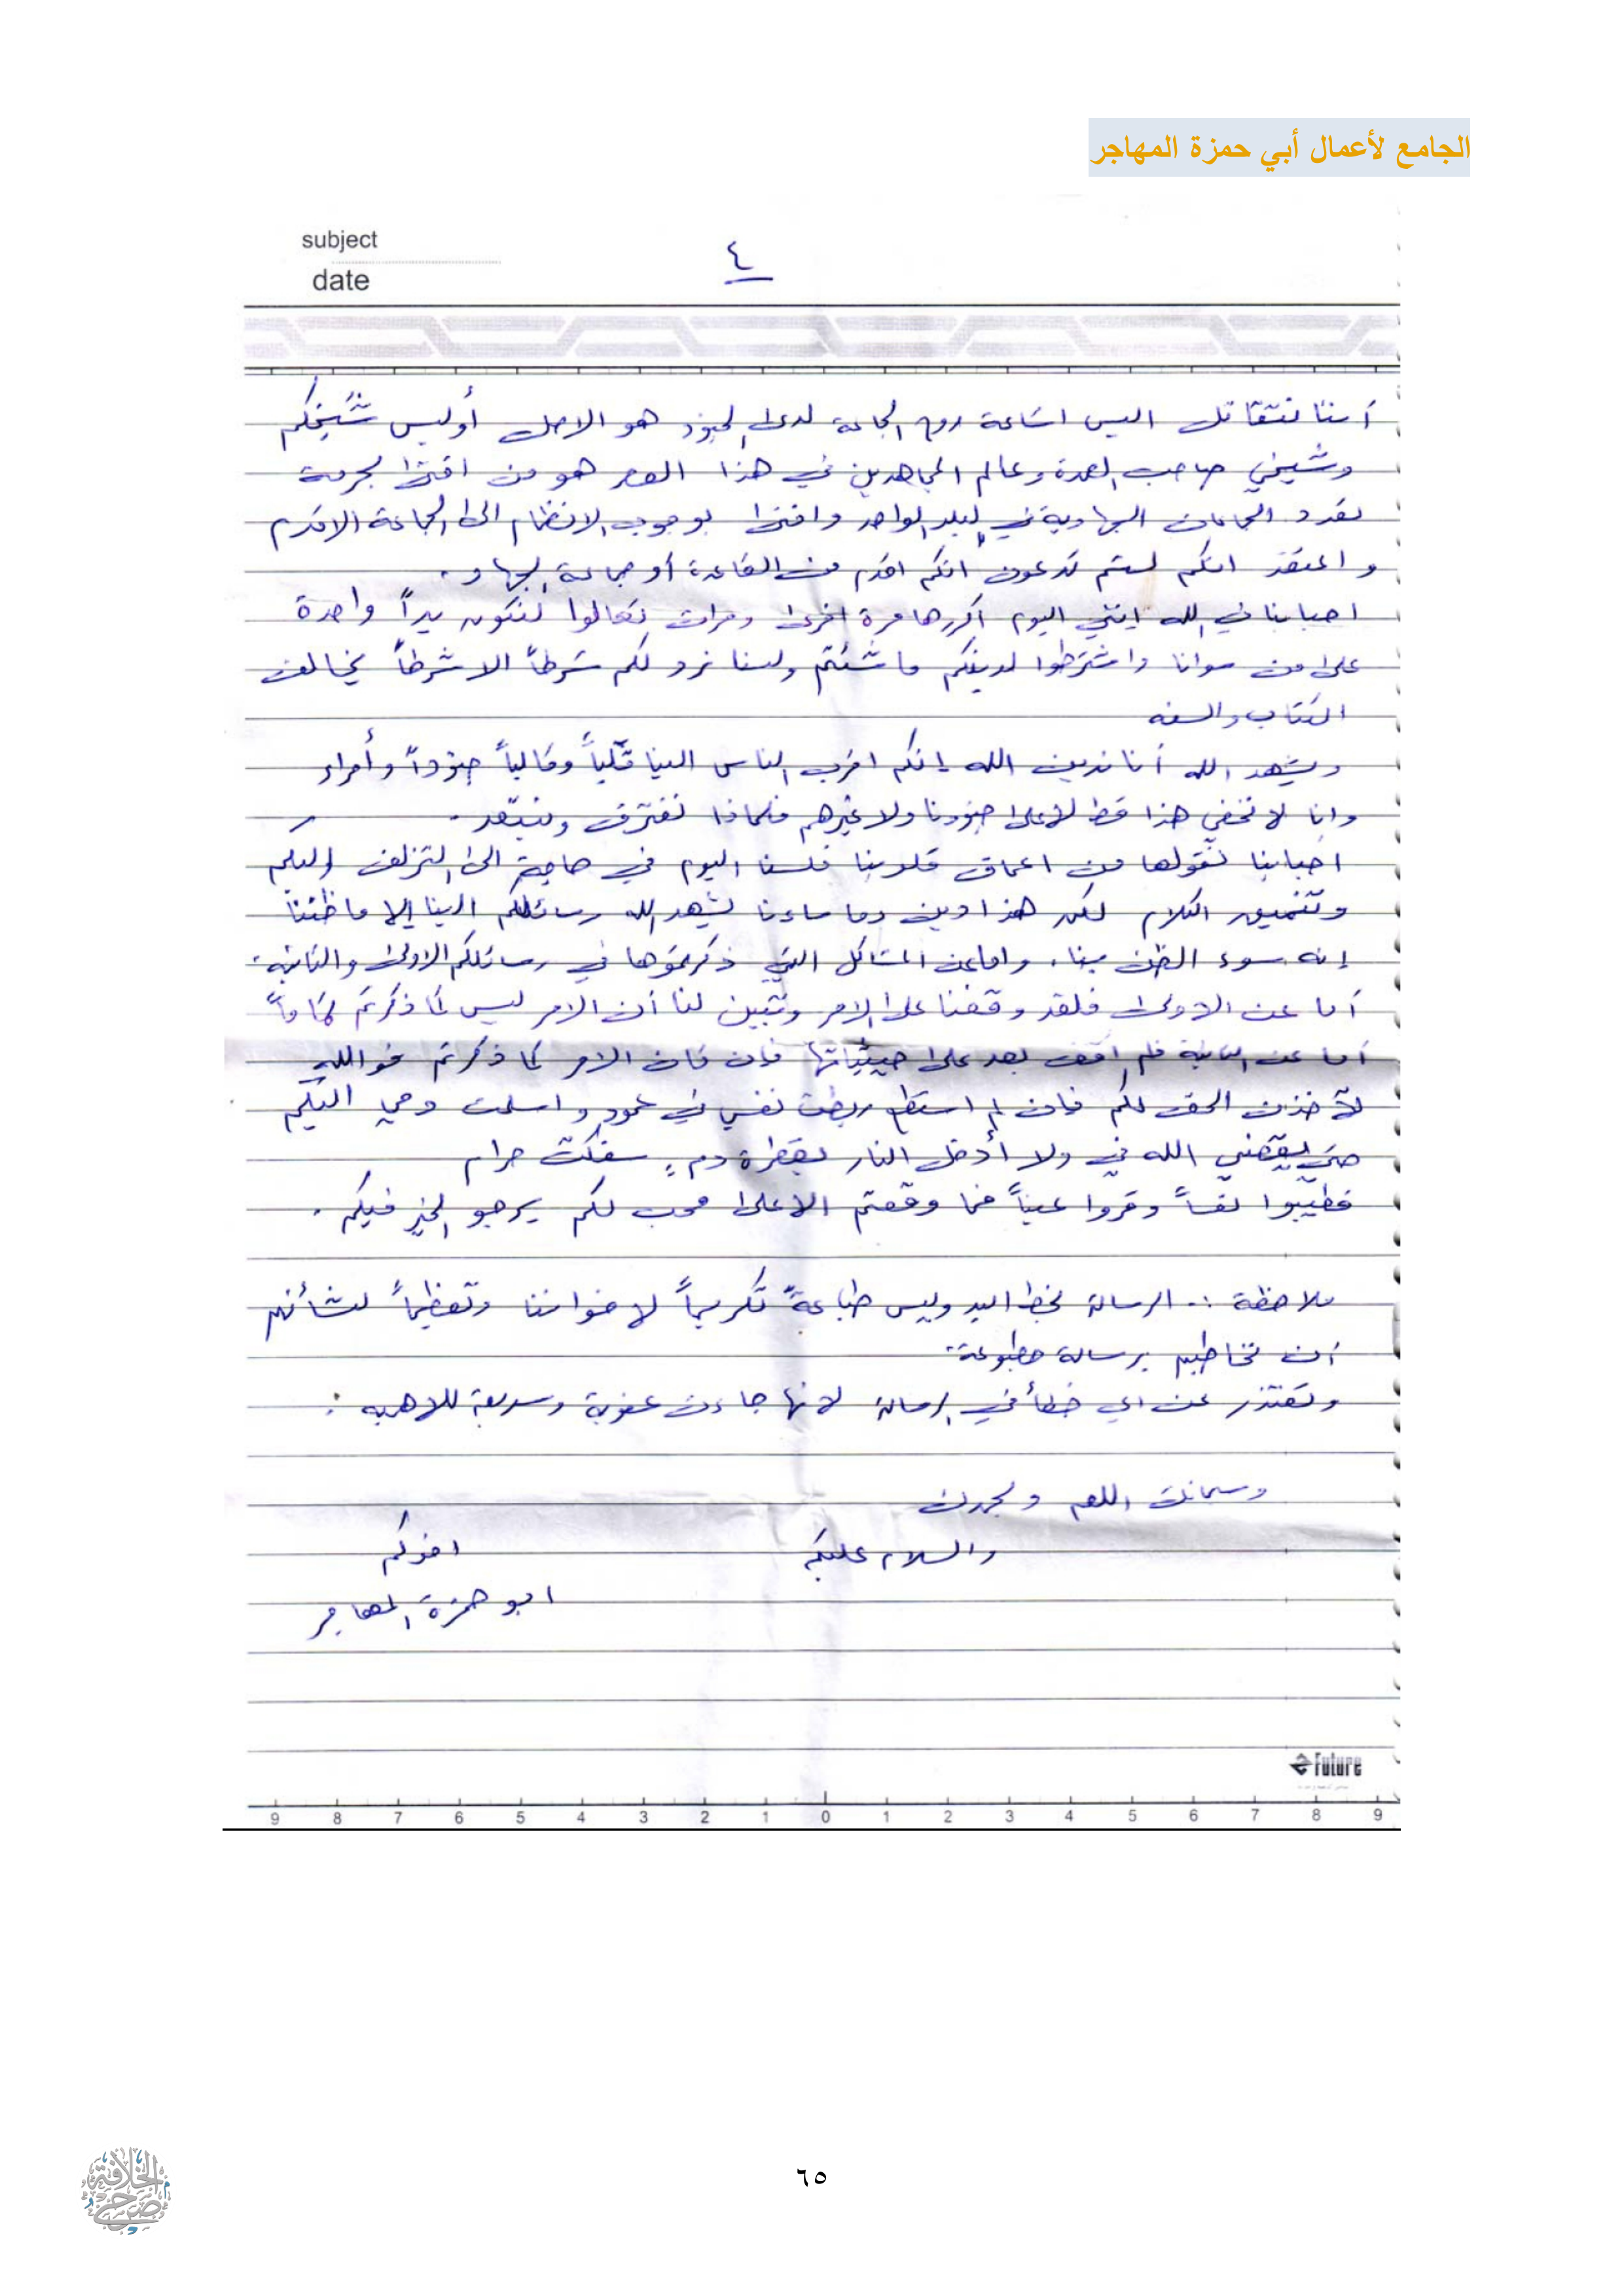 الجامع لأعمال أبي حمزة المهاجر
subject
٤
date
أننا نتقاتل اليس اشاعة روح الجماعة لدى الجنود هو الاصل أوليس شيخكم
وشيخي صاحب العمدة وعالم المجاهدين في هذا العصر هو من افتى بحرمة
تعدد الجماعات الجهادية في البلد الواحد وافتى بوجوب الانضمام الى الجماعة الاقدم
واعتقد انكم لستم تدعون انكم اقدم من القاعدة أو جماعة الجهاد.
احبابنا في الله إنني اليوم اكررها مرة اخرى ومرات تعالوا لنكون يداً واحدة
على من سوانا واشترطوا لدينكم ما شئتم ولسنا نرد لكم شرطاً الا شرطاً يخالف
الكتاب والسنه
ويشهد الله أنا ندين الله إنكم اقرب الناس الينا قلباً وقالباً جنوداً وأمراء
وانا لا نخفي هذا قط لا على جنودنا ولا غيرهم فلماذا نفترق ونبتعد.
احبابنا نقولها من اعماق قلوبنا فلسنا اليوم في حاجة الى التزلف اليكم
وتنميق الكلام لكن هذا دين وما ساءنا يشهد الله رسائلكم الينا إلا ما ظننا
إنه سوء الظن بنا. واما عن المشاكل التي ذكرتموها في رسائلكم الاولى والثانية.
أما عن الاولى فلقد وقفنا على الامر وتبين لنا أن الامر ليس كما ذكرتم تماماً
أما عن الثانية فلم اقف بعد على حيثياتها فإن كان الامر كما ذكرتم فوالله
لآخذن الحق لكم فان لم استطع ربطت نفسي في عمود واسلمت دمي اليكم
حتى يقضي الله في ولا أدخل النار بقطرة دمٍ سفكت حرام
فطيبوا نفساً وقروا عيناً فما وقعتم الا على محب لكم يرجو الخير فيكم.
ملاحظة :. الرسالة بخط اليد وليس طباعةً تكريماً لاخواننا وتعظيماً لشأنهم
أن نخاطبهم برسالة مطبوعة.
ونعتذر عن اي خطأ في الرسالة لانها جاءت عفوية وسريعة للاهمية.
وسبحانك اللهم وبحمدك
والسلام عليكم
اخوكم
ابو حمزة المهاجر
Future
9 8 7 6 5 4 3 2 1 0 1 2 3 4 5 6 7 8 9
٦٥